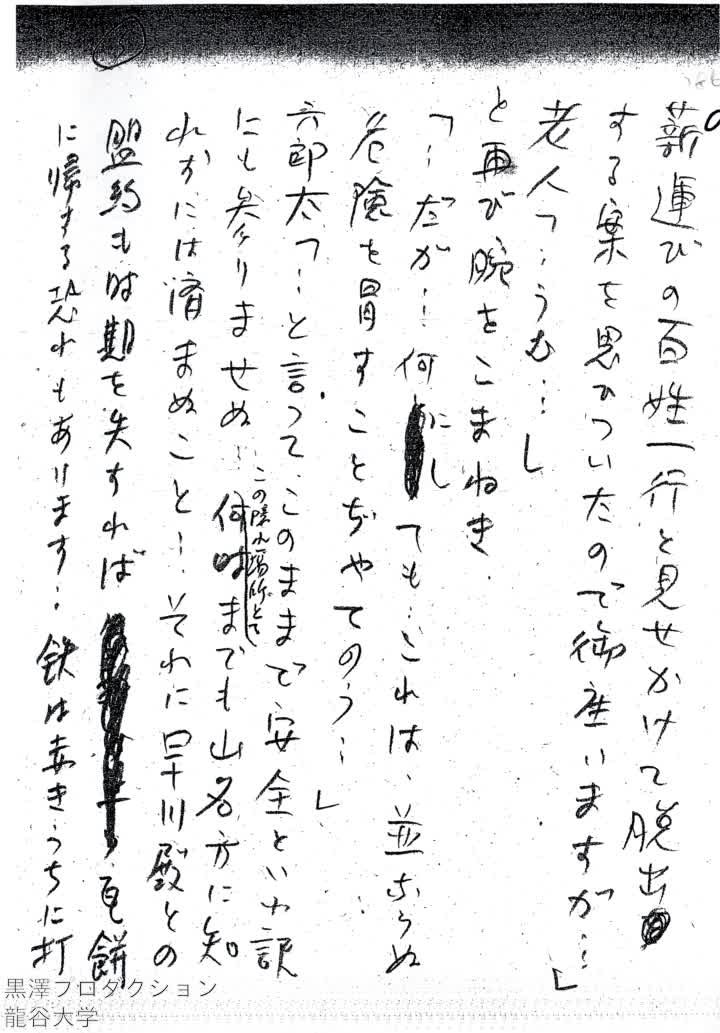 薪運びの百姓一行と見せかけて脱出
する案を思ひついたので御座いますが…」
老人「…うむ…」
と再び腕をこまねき
「…だが…何にしても…これは、並ならぬ
危険を冒すことぢやてのう…」
六郎太「…と言つて、このままで安全といふ訳
にも参りませぬ…この隠れ場所とて何時までも山名方に知
れずには済まぬこと…それに早川殿との
盟約も時期を失すれば、画餅
に帰する恐れもあります…鉄は赤きうちに打
黒澤プロダクション
龍谷大学